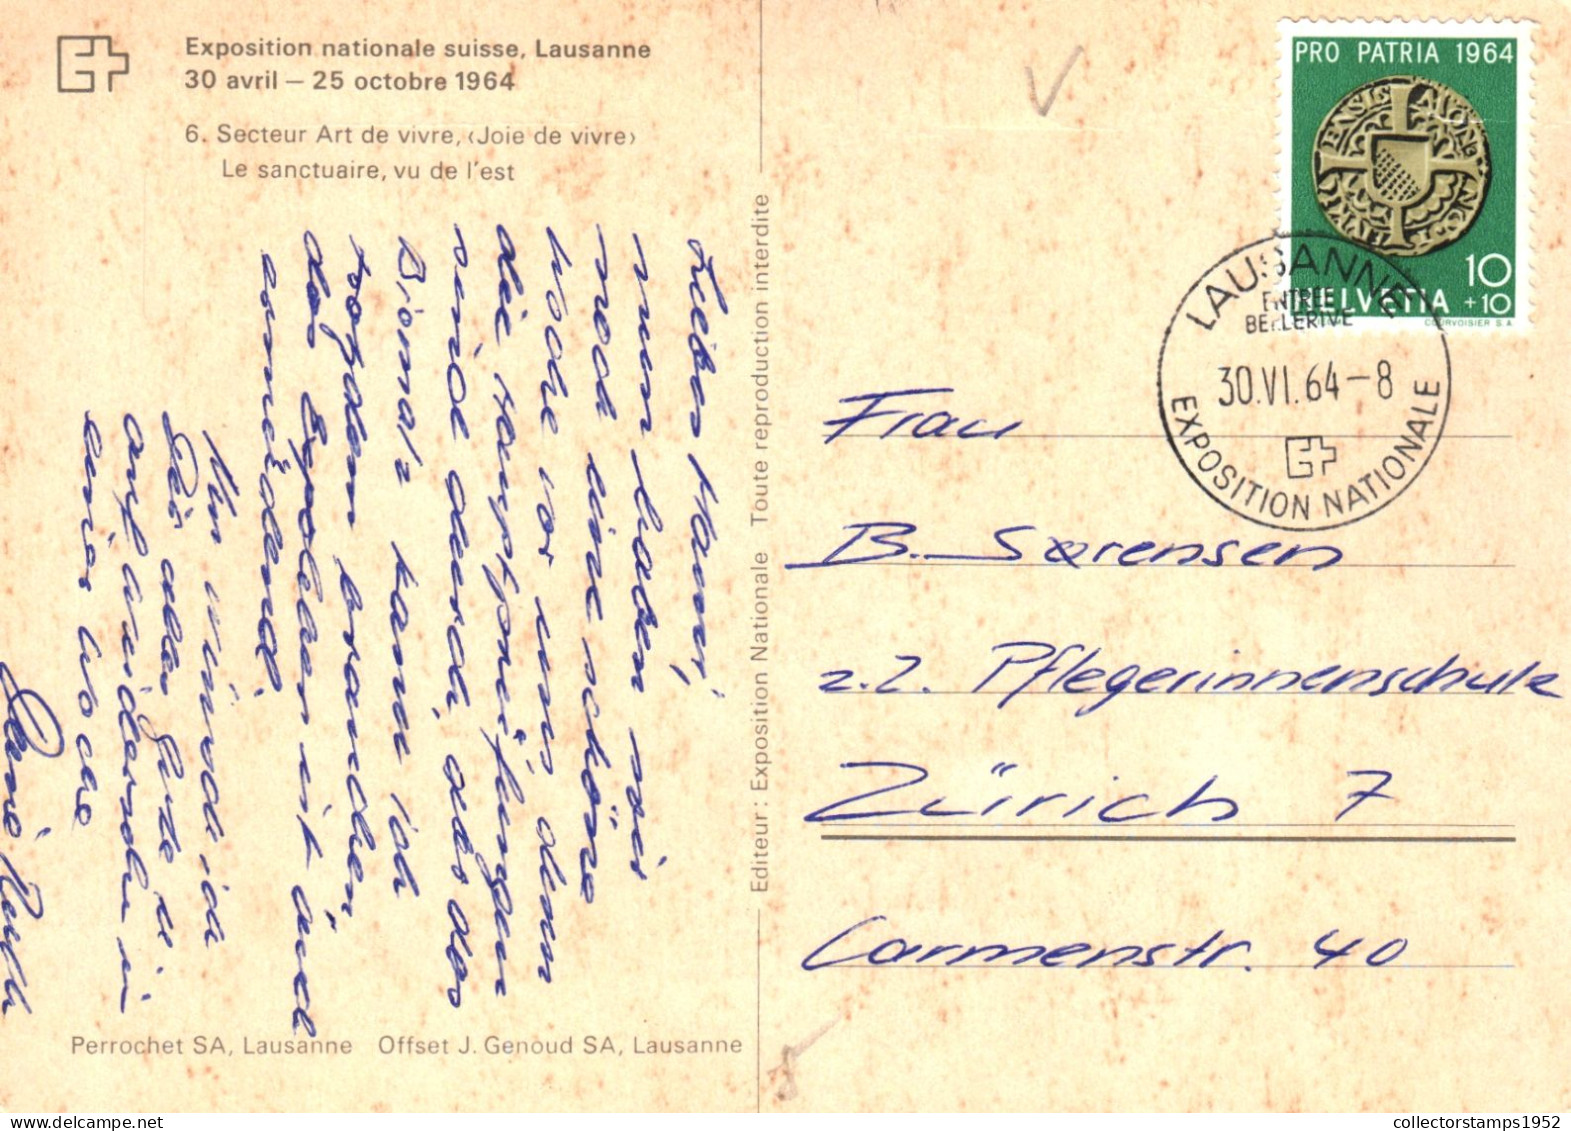 Exposition nationale suisse, Lausanne
30 avril – 25 octobre 1964
6. Secteur Art de vivre, ‹Joie de vivre›
Le sanctuaire, vu de l'est
Liebes Mami,
nun haben wir
noch eine schöne
Woche vor uns, denn
die
sind da, aber das
kann ich
trotzdem brauchen,
das Expoleben ist
ermüdend.
Nun wünsch ich
Dir alles Gute u
auf Wiedersehn in
einer Woche
Deine Ruth
Perrochet SA, Lausanne Offset J. Genoud SA, Lausanne
Editeur: Exposition Nationale Toute reproduction interdite
PRO PATRIA 1964
10
+10
HELVETIA
COURVOISIER S.A.
LAUSANNE
ENTREE
BELLERIVE
30.VI.64-8
EXPOSITION NATIONALE
Frau
B. Sørensen
z.Z. Pflegerinnenschule
Zürich 7
Carmenstr. 40
collectorstamps1952